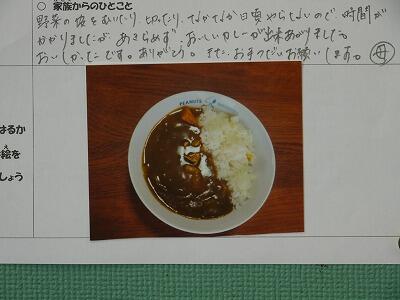 ○ 家族からのひとこと
野菜の皮をむいたり、切ったり、なかなか日頃やらないので、時間が
かかりましたが、あきらめず、おいしいカレーが出来あがりました。
おいしかったです。ありがとう。また、お手つだいお願いします。 母
はるか
絵を
え
しょう
PEANUTS